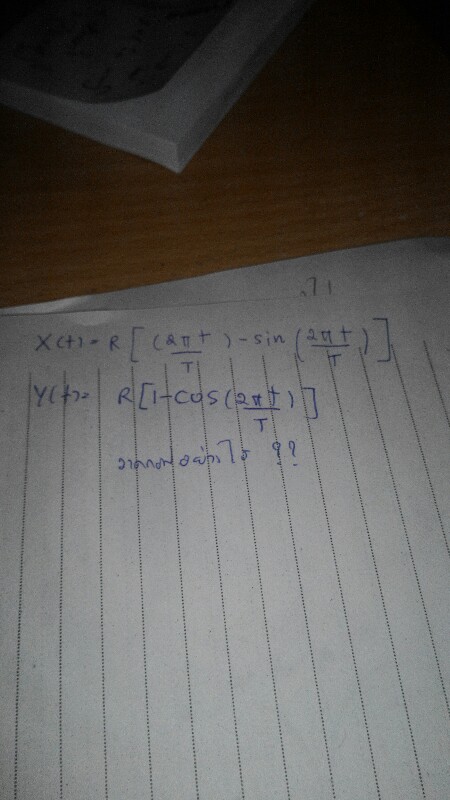 X(t) = R [ (2πt/T) - sin (2πt/T) ]
Y(t) = R [ 1 - cos (2πt/T) ]
วาดกราฟอย่างไร ??